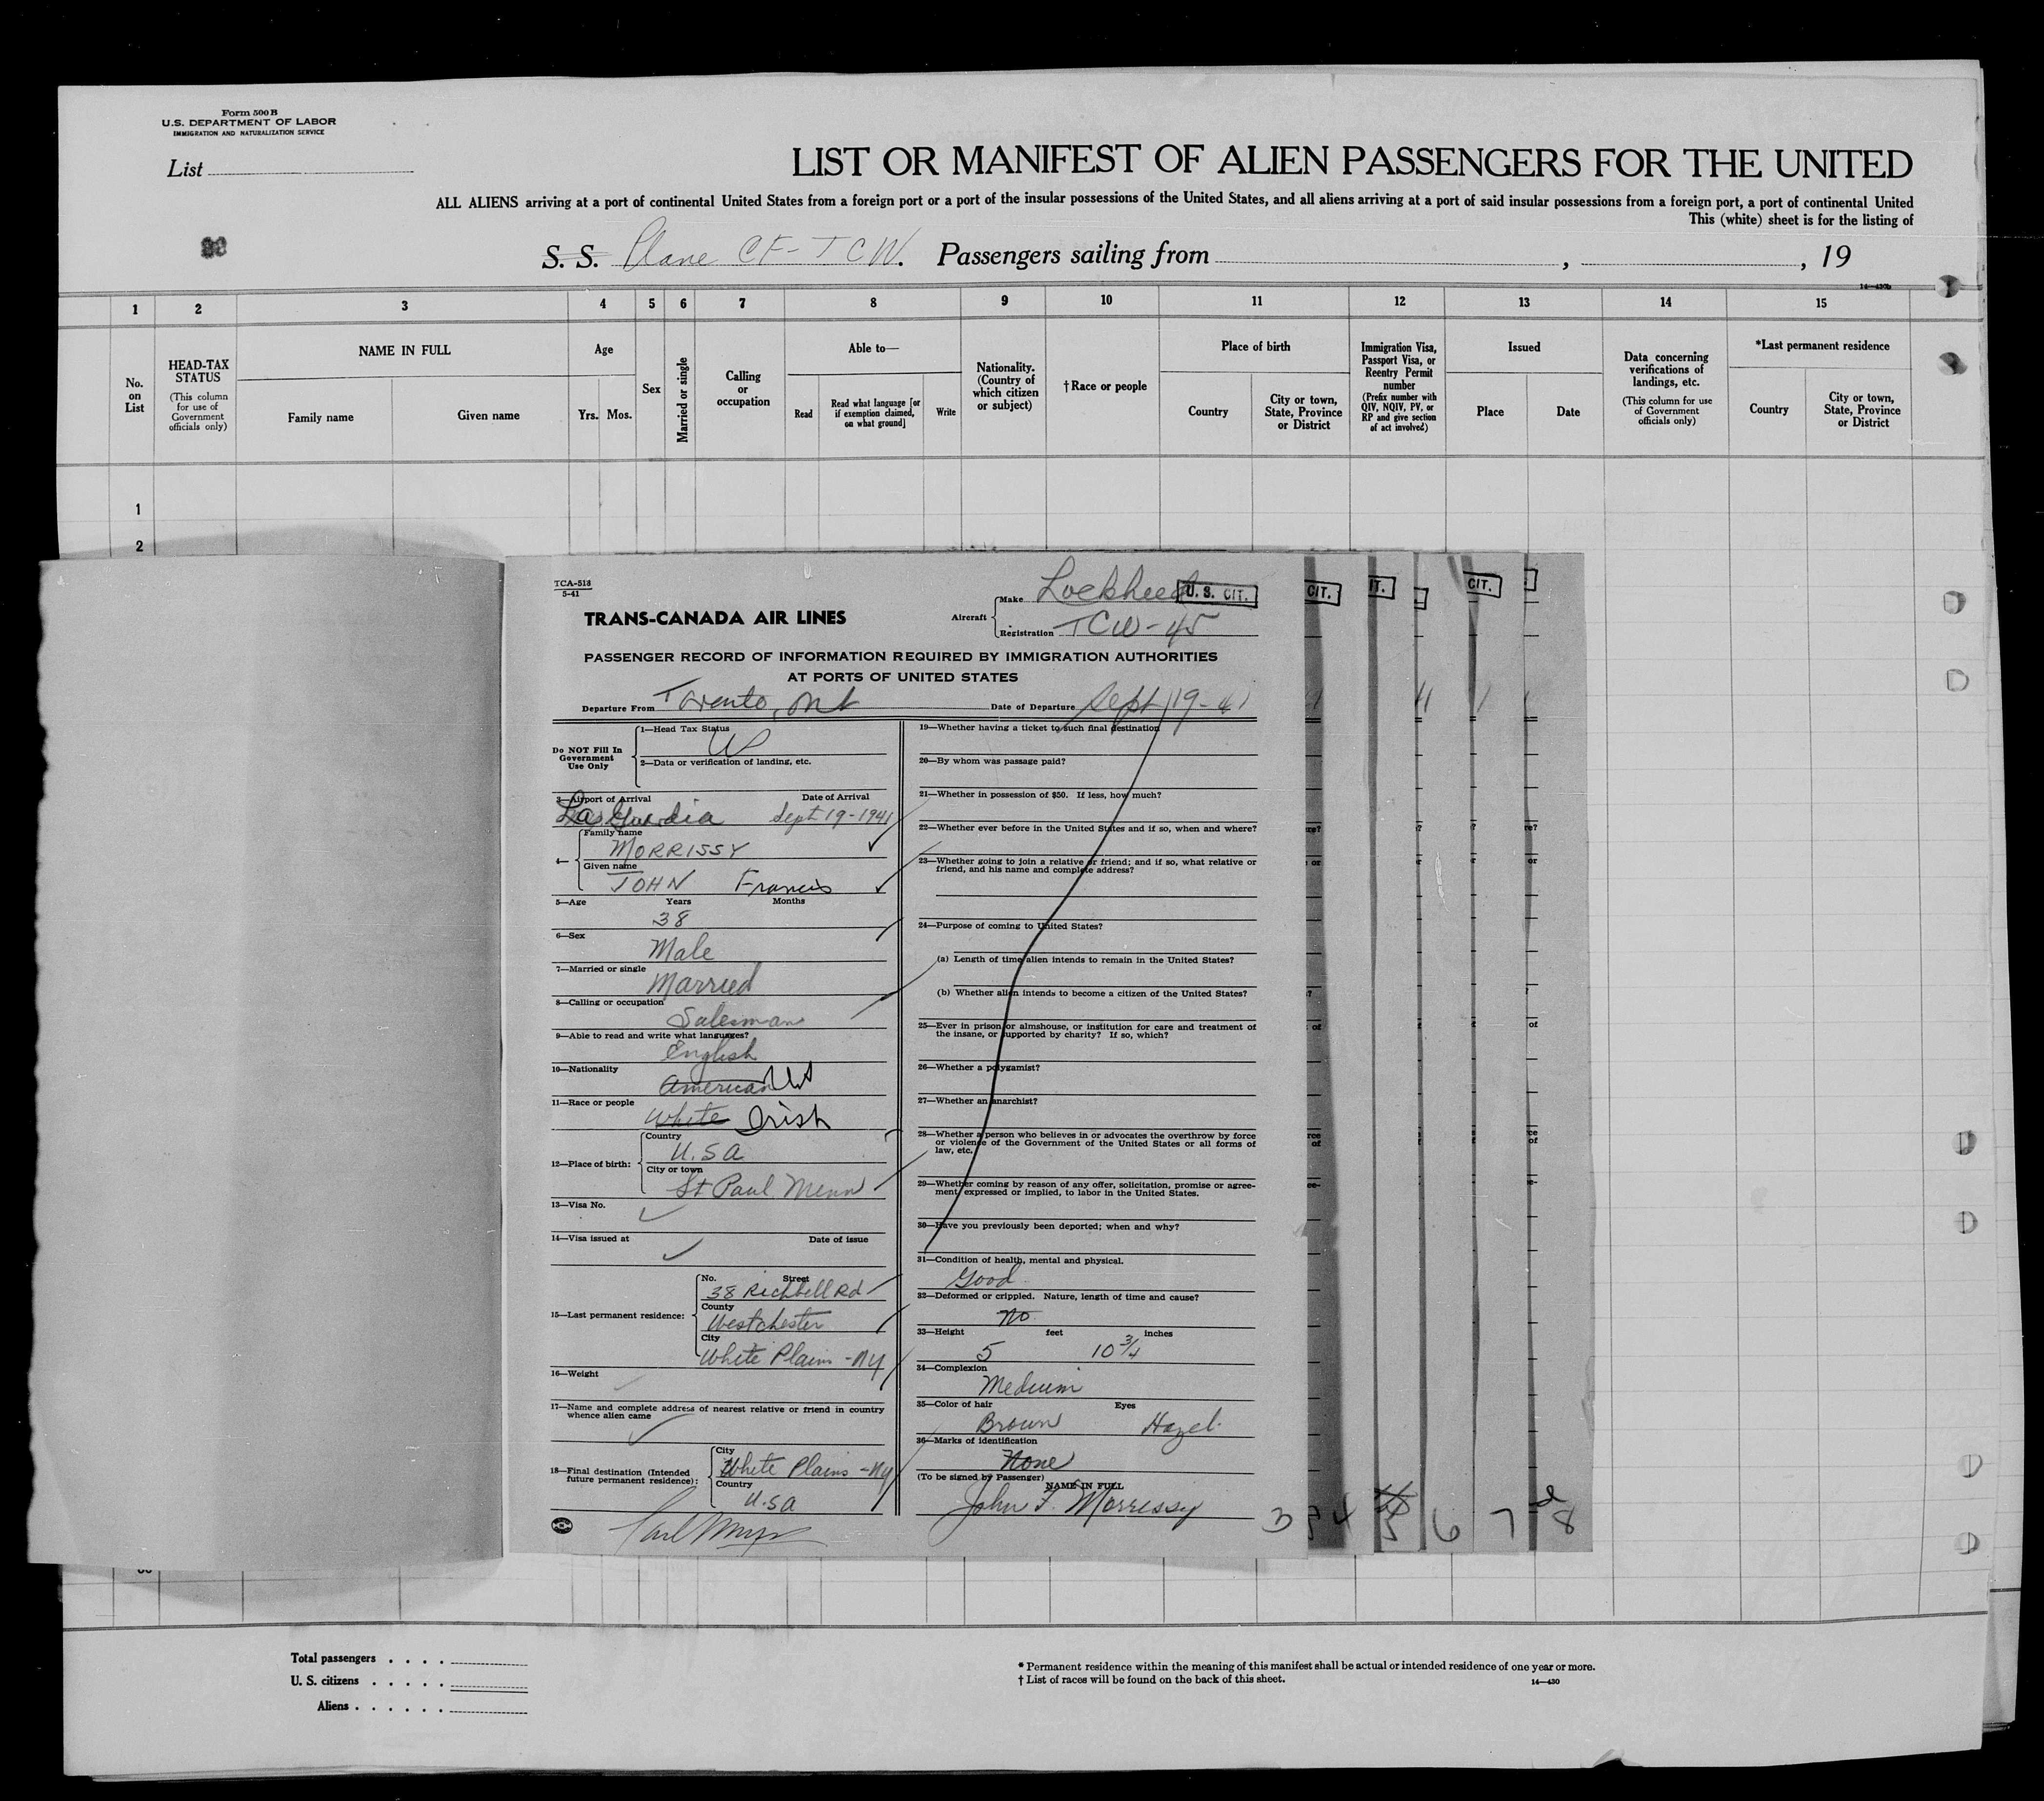 Form 500 B
U.S. DEPARTMENT OF LABOR
IMMIGRATION AND NATURALIZATION SERVICE
List
LIST OR MANIFEST OF ALIEN PASSENGERS FOR THE UNITED
ALL ALIENS arriving at a port of continental United States from a foreign port or a port of the insular possessions of the United States, and all aliens arriving at a port of said insular possessions from a foreign port, a port of continental United
This (white) sheet is for the listing of
S. S. Plane CF-TCW. Passengers sailing from , , 19
14—430b
1 2 3 4 5 6 7 8 9 10 11 12 13 14 15
No. on List
HEAD-TAX STATUS
(This column for use of Government officials only)
NAME IN FULL
Family name Given name
Age
Yrs. Mos.
Sex
Married or single
Calling or occupation
Able to—
Read
Read what language [or if exemption claimed, on what ground]
Write
Nationality. (Country of which citizen or subject)
†Race or people
Place of birth
Country
City or town, State, Province or District
Immigration Visa, Passport Visa, or Reentry Permit number
(Prefix number with QIV, NQIV, PV, or RP and give section of act involved)
Issued
Place Date
Data concerning verifications of landings, etc.
(This column for use of Government officials only)
*Last permanent residence
Country
City or town, State, Province or District
1
2
TCA-518
5-41
TRANS-CANADA AIR LINES
Aircraft
Make Lockheed
U. S. CIT.
CIT.
IT.
CIT.
Registration TCW-45
PASSENGER RECORD OF INFORMATION REQUIRED BY IMMIGRATION AUTHORITIES
AT PORTS OF UNITED STATES
Departure From Toronto, Ont Date of Departure Sept 19-41
Do NOT Fill In Government Use Only
1—Head Tax Status
2—Data or verification of landing, etc.
3—Airport of Arrival Date of Arrival
La Guardia Sept 19-1941
4—
Family name
MORRISSY
Given name
JOHN Francis
5—Age Years Months
38
6—Sex
Male
7—Married or single
Married
8—Calling or occupation
Salesman
9—Able to read and write what languages?
English
10—Nationality
American US
11—Race or people
White Irish
12—Place of birth:
Country
U.S.A
City or town
St Paul Minn
13—Visa No.
14—Visa issued at Date of issue
15—Last permanent residence:
No. Street
38 Richbell Rd
County
Westchester
City
White Plains -NY
16—Weight
17—Name and complete address of nearest relative or friend in country whence alien came
18—Final destination (Intended future permanent residence):
City
White Plains -NY
Country
U.S.A
19—Whether having a ticket to such final destination
20—By whom was passage paid?
21—Whether in possession of $50. If less, how much?
22—Whether ever before in the United States and if so, when and where?
23—Whether going to join a relative or friend; and if so, what relative or
friend, and his name and complete address?
24—Purpose of coming to United States?
(a) Length of time alien intends to remain in the United States?
(b) Whether alien intends to become a citizen of the United States?
25—Ever in prison or almshouse, or institution for care and treatment of
the insane, or supported by charity? If so, which?
26—Whether a polygamist?
27—Whether an anarchist?
28—Whether a person who believes in or advocates the overthrow by force
or violence of the Government of the United States or all forms of
law, etc.
29—Whether coming by reason of any offer, solicitation, promise or agree-
ment, expressed or implied, to labor in the United States.
30—Have you previously been deported; when and why?
31—Condition of health, mental and physical.
Good
32—Deformed or crippled. Nature, length of time and cause?
No
33—Height feet inches
5 10 3/4
34—Complexion
Medium
35—Color of hair Eyes
Brown Hazel
36—Marks of identification
None
(To be signed by Passenger)
NAME IN FULL
John F. Morrissy
3 4 5 6 7 8
Total passengers
U. S. citizens
Aliens
* Permanent residence within the meaning of this manifest shall be actual or intended residence of one year or more.
† List of races will be found on the back of this sheet.
14—430